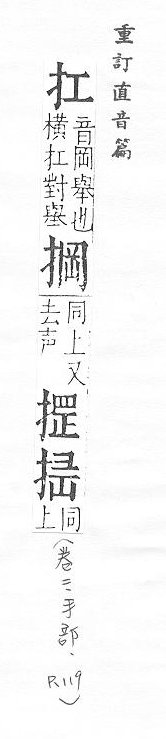 重訂直音篇
扛
音岡舉也
橫扛對舉
掆
同上又
去声
同
上
(卷三手部、P.119)